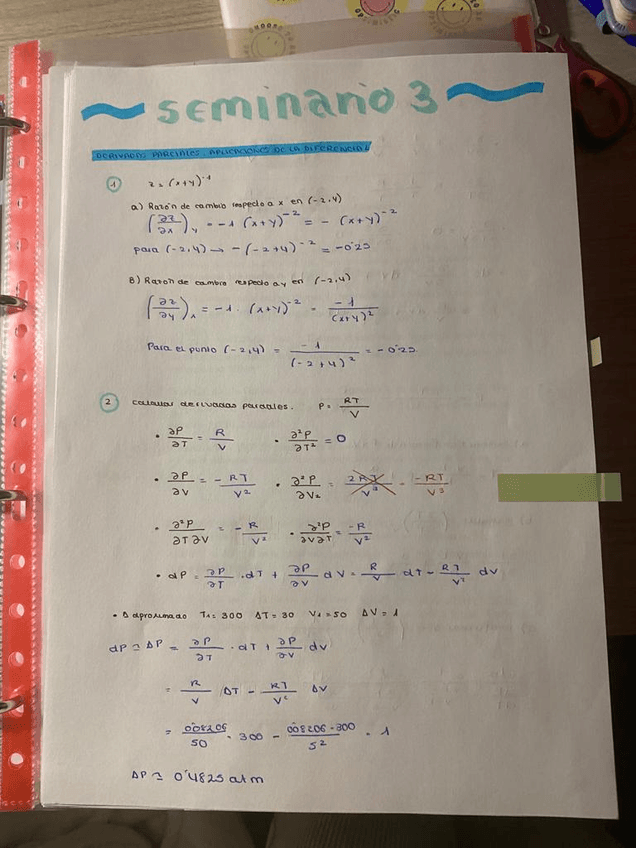 SEMINARIO 3
DERIVADAS PARCIALES. APLICACIONES DE LA DIFERENCIAL
1 z = (x+y)^-1
a) Razón de cambio respecto a x en (-2,4)
(∂z/∂x)y = -1 (x+y)^-2 = - (x+y)^-2
para (-2,4) → -(-2+4)^-2 = -0'25
B) Razon de cambio respecto a y en (-2,4)
(∂z/∂y)x = -1 · (x+y)^-2 = -1/(x+y)^2
Para el punto (-2,4) = -1/(-2+4)^2 = -0'25.
2 Calcular derivadas parciales. P = RT/V
• ∂P/∂T = R/V • ∂²P/∂T² = 0
• ∂P/∂V = - RT/V² • ∂²P/∂V² = = -RT/V³
• ∂²P/∂T∂V = -R/V² • ∂²P/∂V∂T = -R/V²
• dP = ∂P/∂T · dT + ∂P/∂V dV = R/V dT - RT/V² dV
• Δ aproximado T1 = 300 ΔT = 30 V1 = 50 ΔV = 1
dP ≃ ΔP = ∂P/∂T · dT + ∂P/∂V dV
= R/V ΔT - RT/V² ΔV
= 0'08206/50 · 300 - 0'08206·300/5² · 1
ΔP ≃ 0'4825 atm